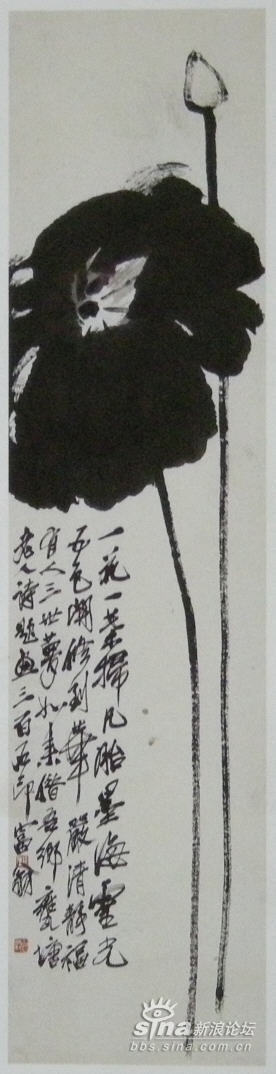 一花一葉掃凡胎墨海靈光
五色開修到華嚴清靜福
有人三世夢如來借吾鄉塘
老人詩題畫三百石印富翁
sina新浪论坛
bbs.sina.com.cn